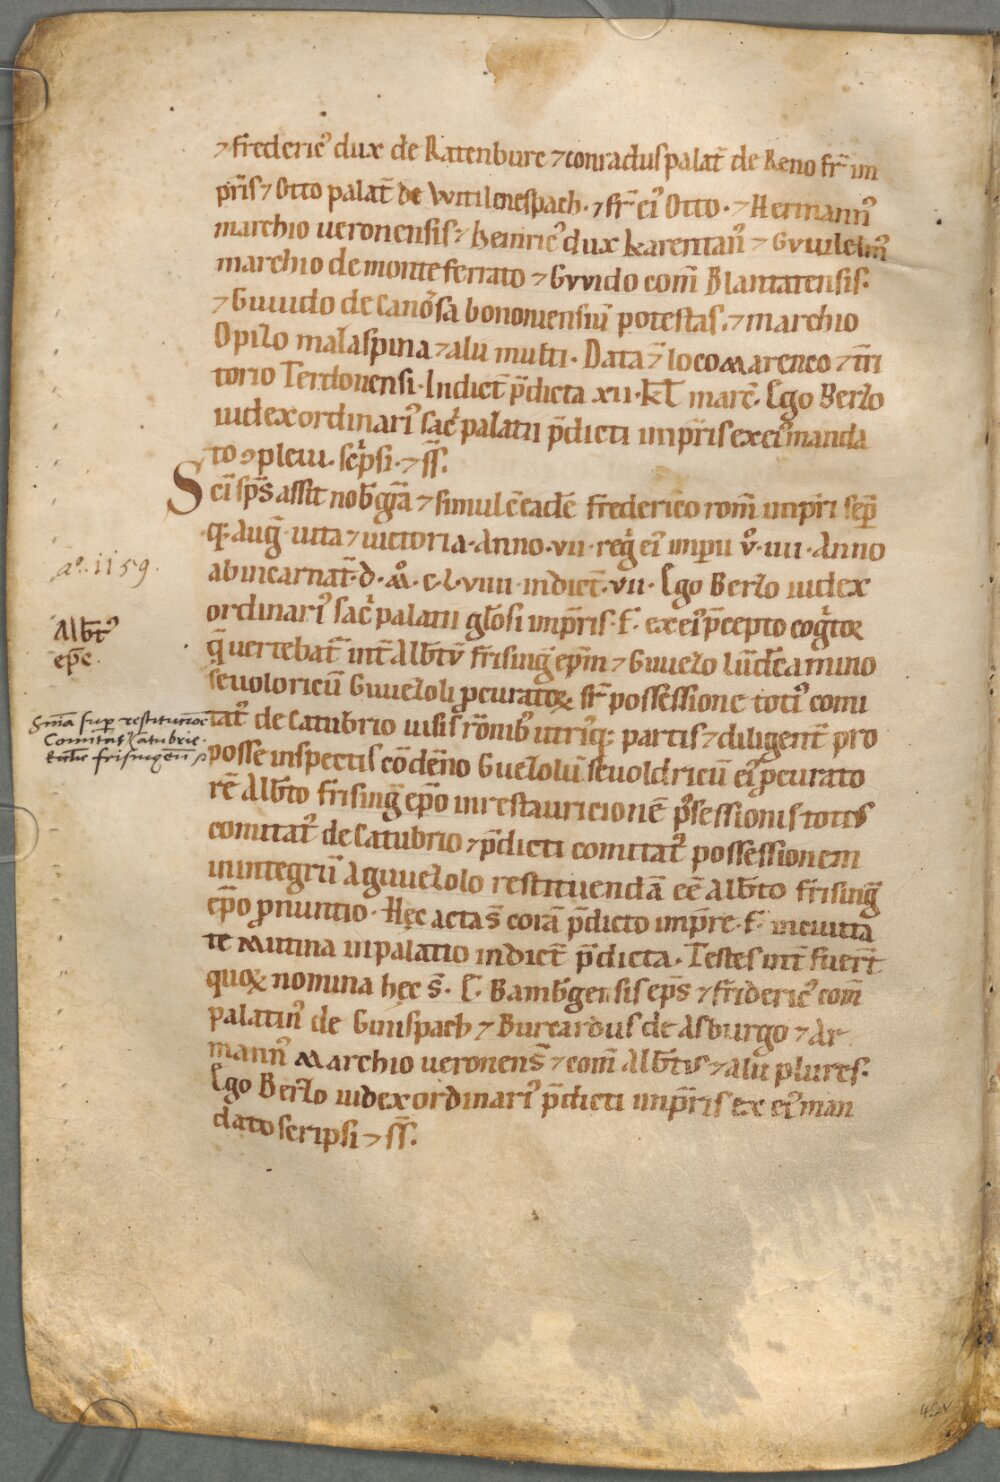 ⁊ frederic᷒ dux de Ratenburc ⁊ conradus palat̄ de Reno fr̄ im
p̄ris ⁊ Otto palat̄ de Witilenespach · ⁊ fr̄ ei᷒ Otto · ⁊ Hermann᷒
marchio ueronensis ⁊ heinric᷒ dux karentan᷒ ⁊ Gvvilelm᷒
marchio de monte ferrato ⁊ Gvvido com̄ Blantatensis ·
⁊ Guuido de canossa bononiensiū potestas · ⁊ marchio
Opizo malaspina ⁊ alii multi · Data ē loco marenco ⁊ t̄ri
torio Terdonensi · Indict̄ p̄dicta xii · kl̄ marc̄ · Ego Berto
iudex ordinari᷒ sac̄ palatii p̄dicti imp̄ris ex ei᷒ manda
to ꝯpleui · sc̄psi · ⁊ ss̄ ·
Sc̄i sp̄s assit nob̄ gr̄a ⁊ simul ē eadē frederico rom̄ imp̄ri sep̄
q; auḡ uita ⁊ uictoria · Anno · vii · reḡ ei᷒ imp̄ii v̊ · iiii · Anno
ab incarnat̄ · d̄ · M̊ · c · l · viiii · indict̄ · vii · Ego Berto iudex
ordinari᷒ sac̄ palatii gl̄osi imp̄ris · f · ex ei᷒ p̄cepto cog̅toꝝ
q̄ uertebat᷑ int̄ Alb̄tū frising̅ ep̄m ⁊ Guuezo
seuoloricū Guuezoli ꝓcuratoꝝ sr̄ possessione toti᷒ comi
tat᷒ de catubrio uisis rōnib᷒ utriq; partis ⁊ diligent̄ pro
posse inspectis cōdēno Guezolū seuoldricū ei᷒ ꝓcurato
rē Alb̄to frising̅ ep̄o in restauricionē possessionis toti᷒
comitat᷒ de catubrio ⁊ p̄dicti comitat᷒ possessionem
in integrū A guuezolo restituendā eē Alb̄to frising̅
ep̄o ꝓnuntio · Hęc acta s̄ corā p̄dicto imp̄re · f · in ciuita
te Mutina in palatio indict̄ p̄dicta · Testes int̄ fuer̄t
quoꝝ nomina hęc s̄ · E · Bamb̄gensis ep̄s ⁊ frideric᷒ com̄
palatin᷒ de Guuispach ⁊ Burcardus de Asburgo ⁊ Ar
mann᷒ Marchio ueronens̄ ⁊ com̄ Alb̄t᷒ ⁊ alii plures ·
Ego Berto iudex ordinari᷒ p̄dicti imp̄ris ex ei᷒ man
dato scripsi ⁊ ss̄ ·
a᷒. 1159.
Alb̄t᷒
ep̄c.
Sn̄īa sup restitutioē
Comitat᷒ Catubrie
frisingen̄